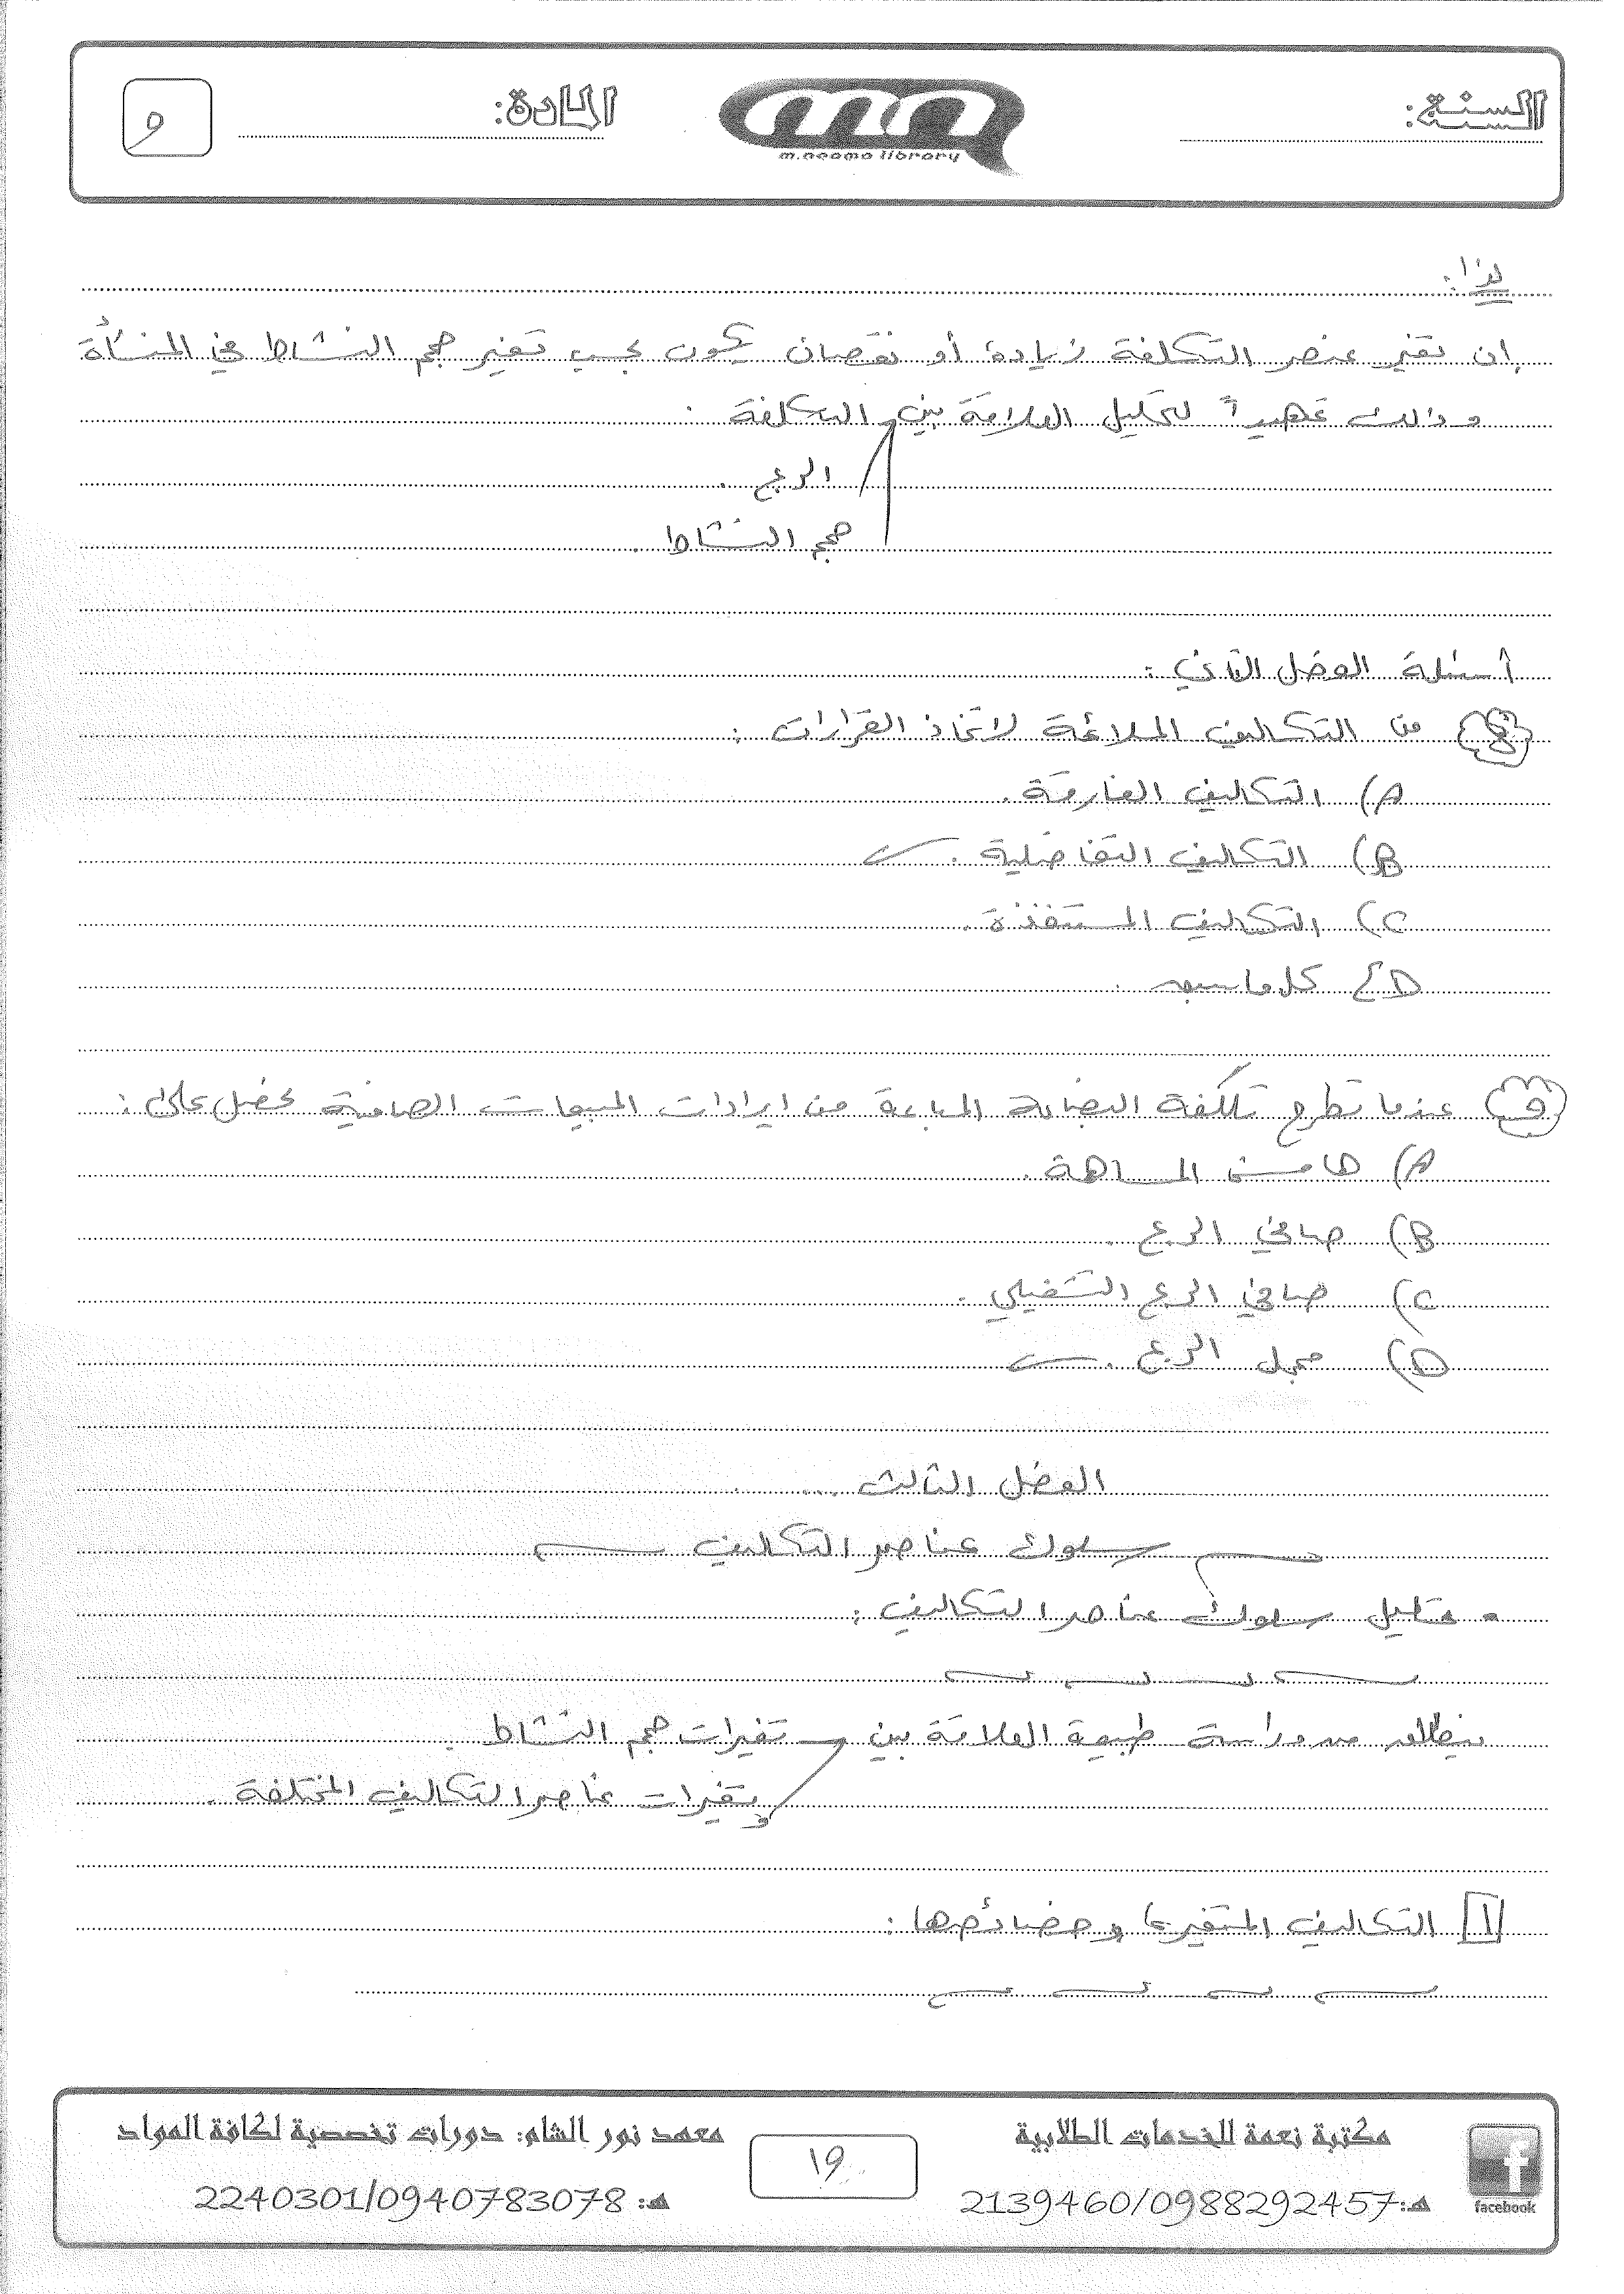 السنة:
المادة:
و
m.neama library
لذا:
إن تغير عنصر التكلفة زيادة أو نقصان يكون بحسب تغير حجم النشاط في المنشأة
وذلك تمهيداً لتحليل العلاقة بين التكلفة.
الربح.
حجم النشاط.
أسئلة الفصل الثاني:
من التكاليف الملائمة لاتخاذ القرارات:
A) التكاليف الغارقة.
B) التكاليف التفاضلية.
C) التكاليف المستنفذة.
D) كل ما سبق.
عندما تطرح تكلفة البضاعة المباعة من ايرادات المبيعات الصافية نحصل على:
A) هامش المساهمة.
B) صافي الربح.
C) صافي الربح التشغيلي.
D) مجمل الربح.
الفصل الثالث ...
سلوك عناصر التكاليف
• تحليل سلوك عناصر التكاليف:
ينطلق من دراسة طبيعة العلاقة بين تغيرات حجم النشاط.
وتغيرات عناصر التكاليف المختلفة.
1 التكاليف المتغيرة وخصائصها:
facebook
مكتبة نعمة للخدمات الطلابية
هـ: 2139460/0988292457
١٩
معهد نور الشام: دورات تخصصية لكافة المواد
هـ: 2240301/0940783078